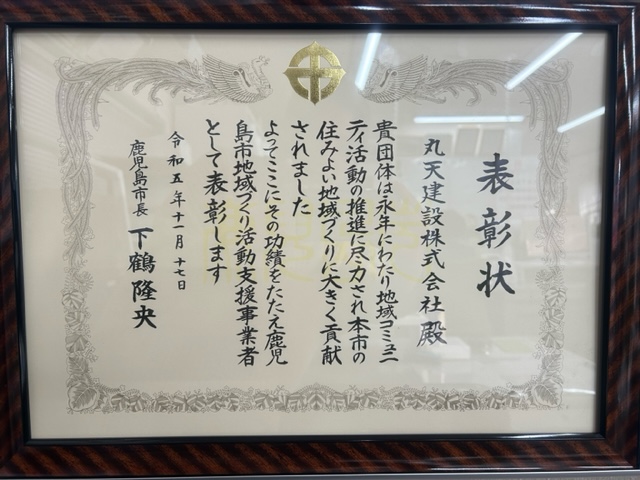 表彰状
丸天建設株式会社 殿
貴団体は永年にわたり地域コミュニ
ティ活動の推進に尽力され本市の
住みよい地域づくりに大きく貢献
されました
よってここにその功績をたたえ鹿児
島市地域づくり活動支援事業者
として表彰します
令和五年十一月十七日
鹿児島市長 下鶴隆央